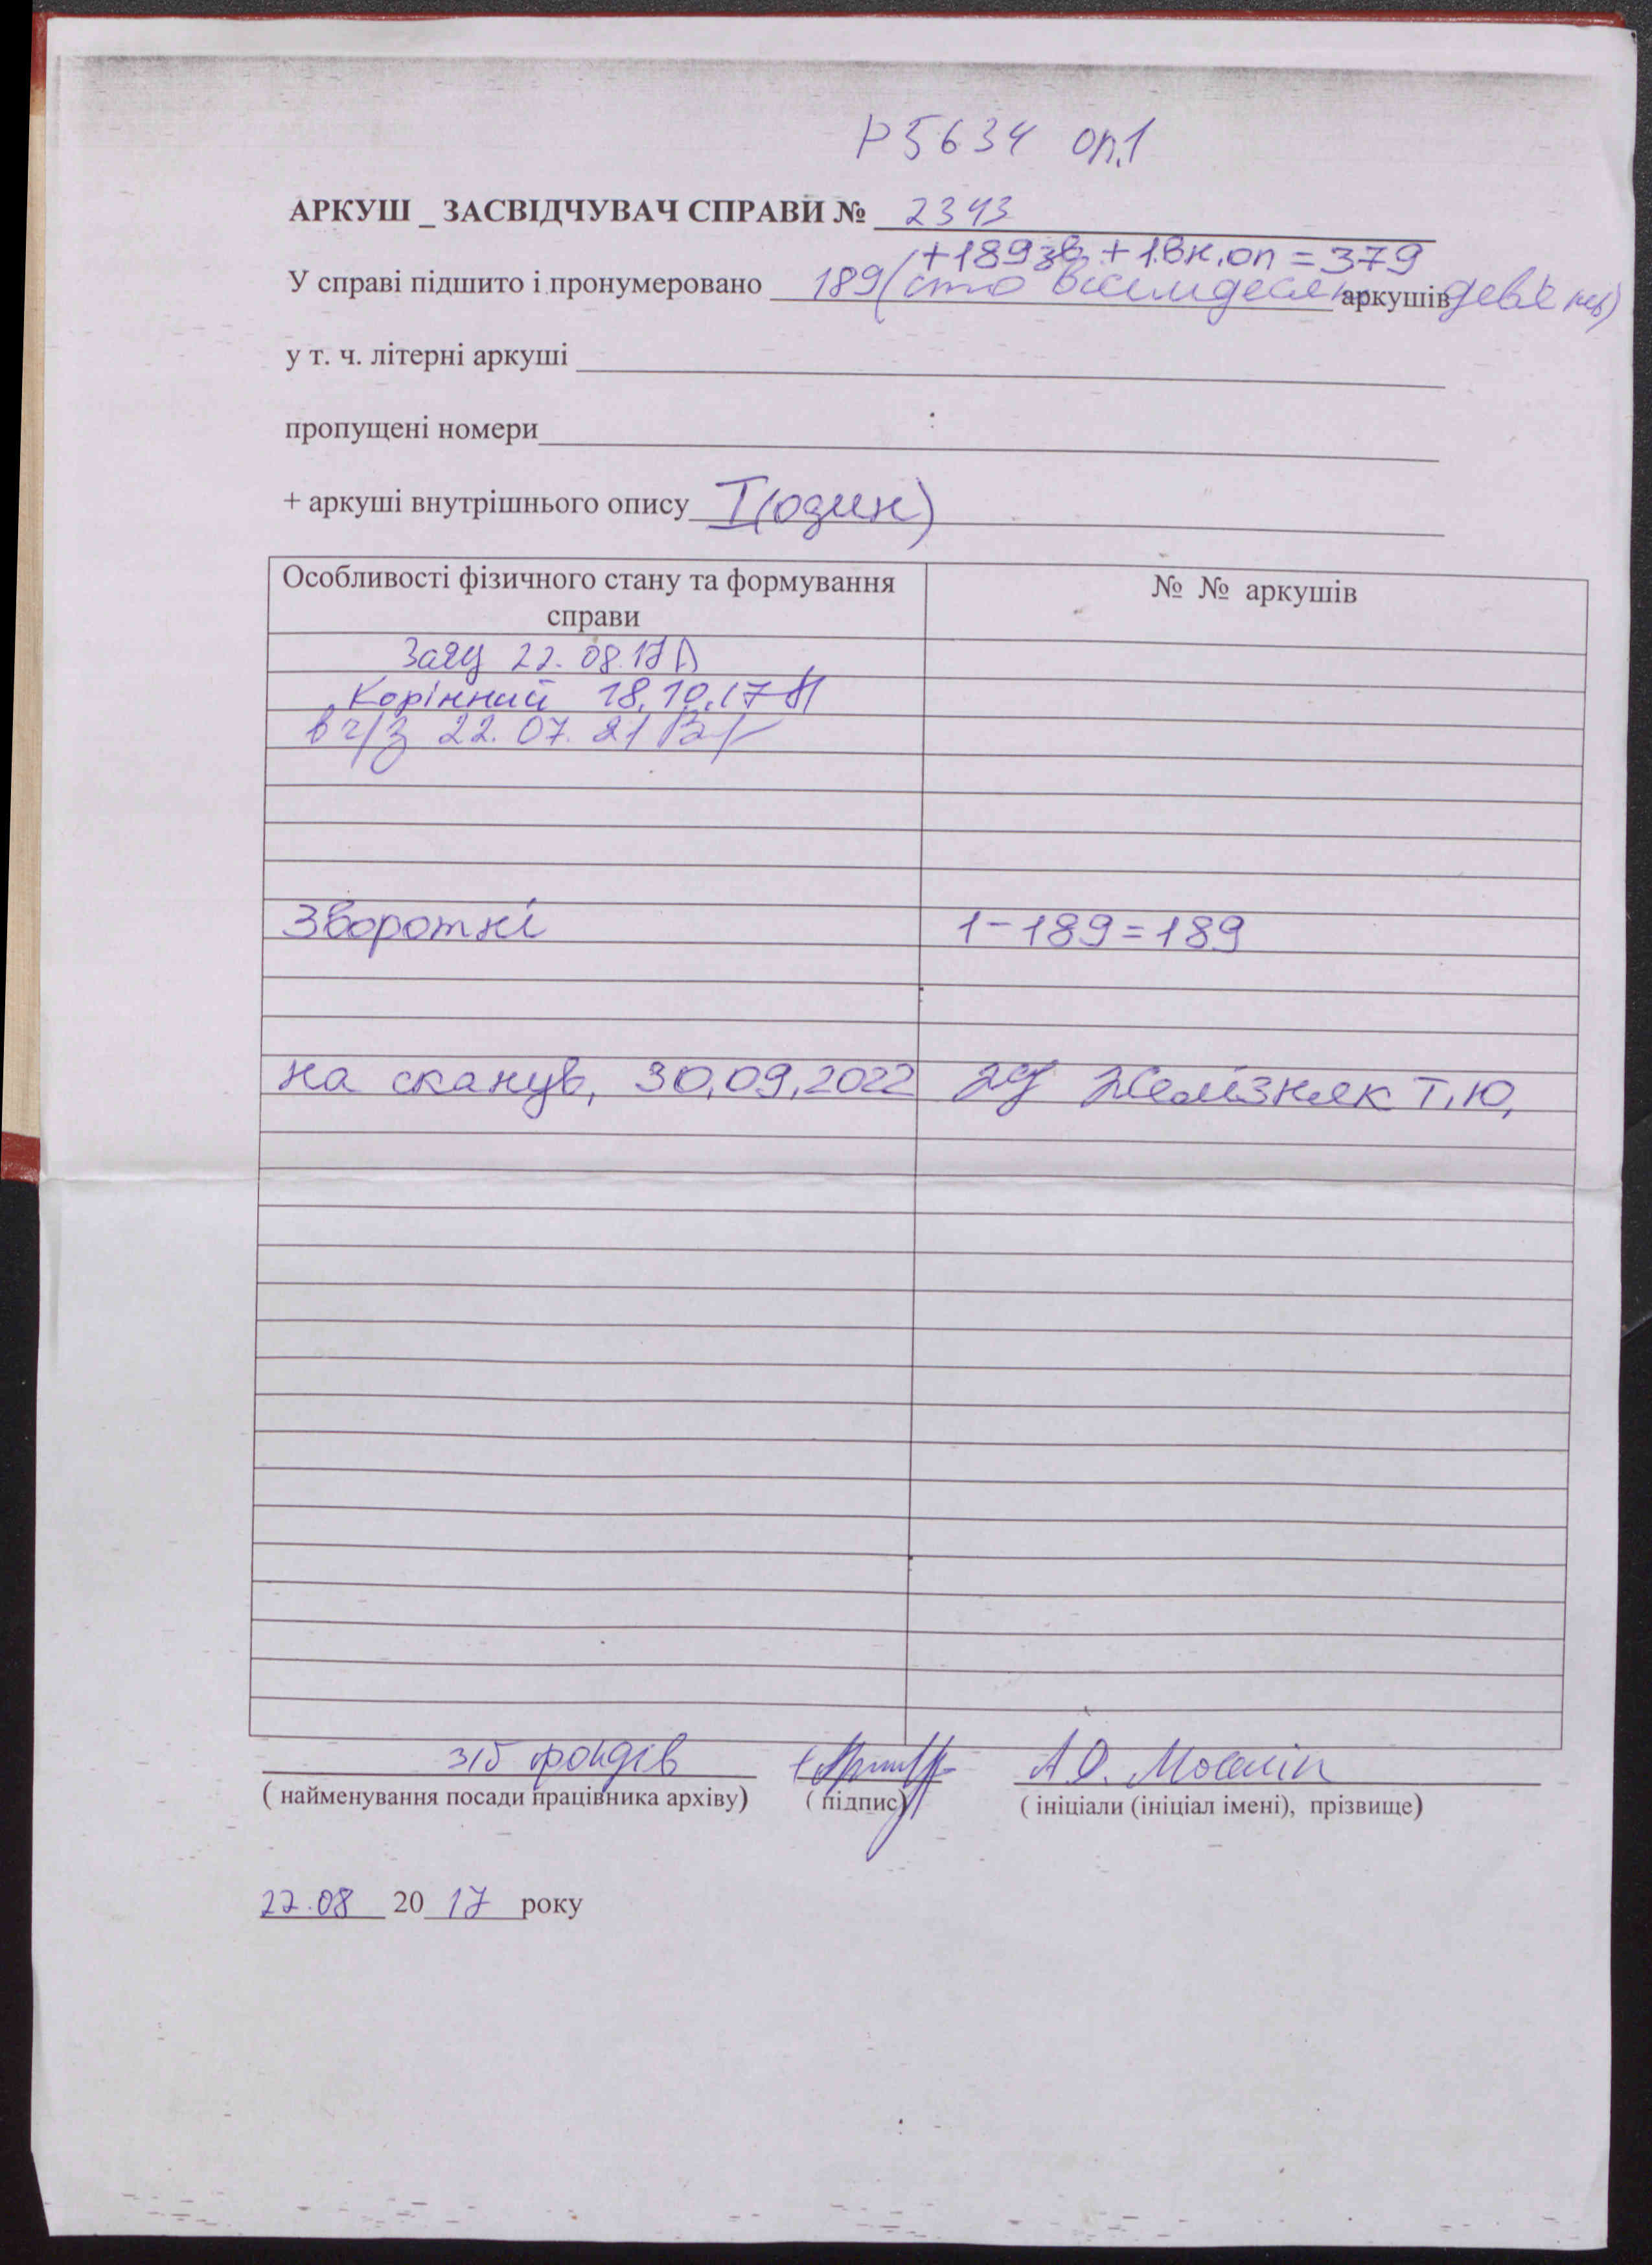 Р5634 оп.1
АРКУШ _ ЗАСВІДЧУВАЧ СПРАВИ № 2343
+189зв.+1вн.оп=379
У справі підшито і пронумеровано 189(сто вісімдесят аркушів дев'ять)
у т. ч. літерні аркуші
пропущені номери
+ аркуші внутрішнього опису I(один)
Особливості фізичного стану та формування справи № № аркушів
Заяц 22.08.17
Корінний 18.10.17
в ч/з 22.07.21
Зворотні 1-189=189
на сканув. 30.09.2022 Желізняк Т.Ю.
фондів
( найменування посади працівника архіву) ( підпис) ( ініціали (ініціал імені), прізвище)
22.08 2017 року